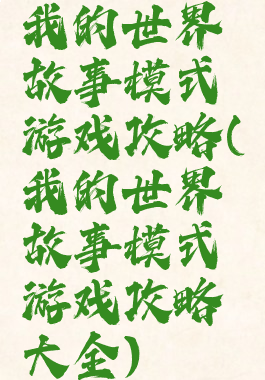 我的世界
故事模式
游戏攻略(
我的世界
故事模式
游戏攻略
大全)